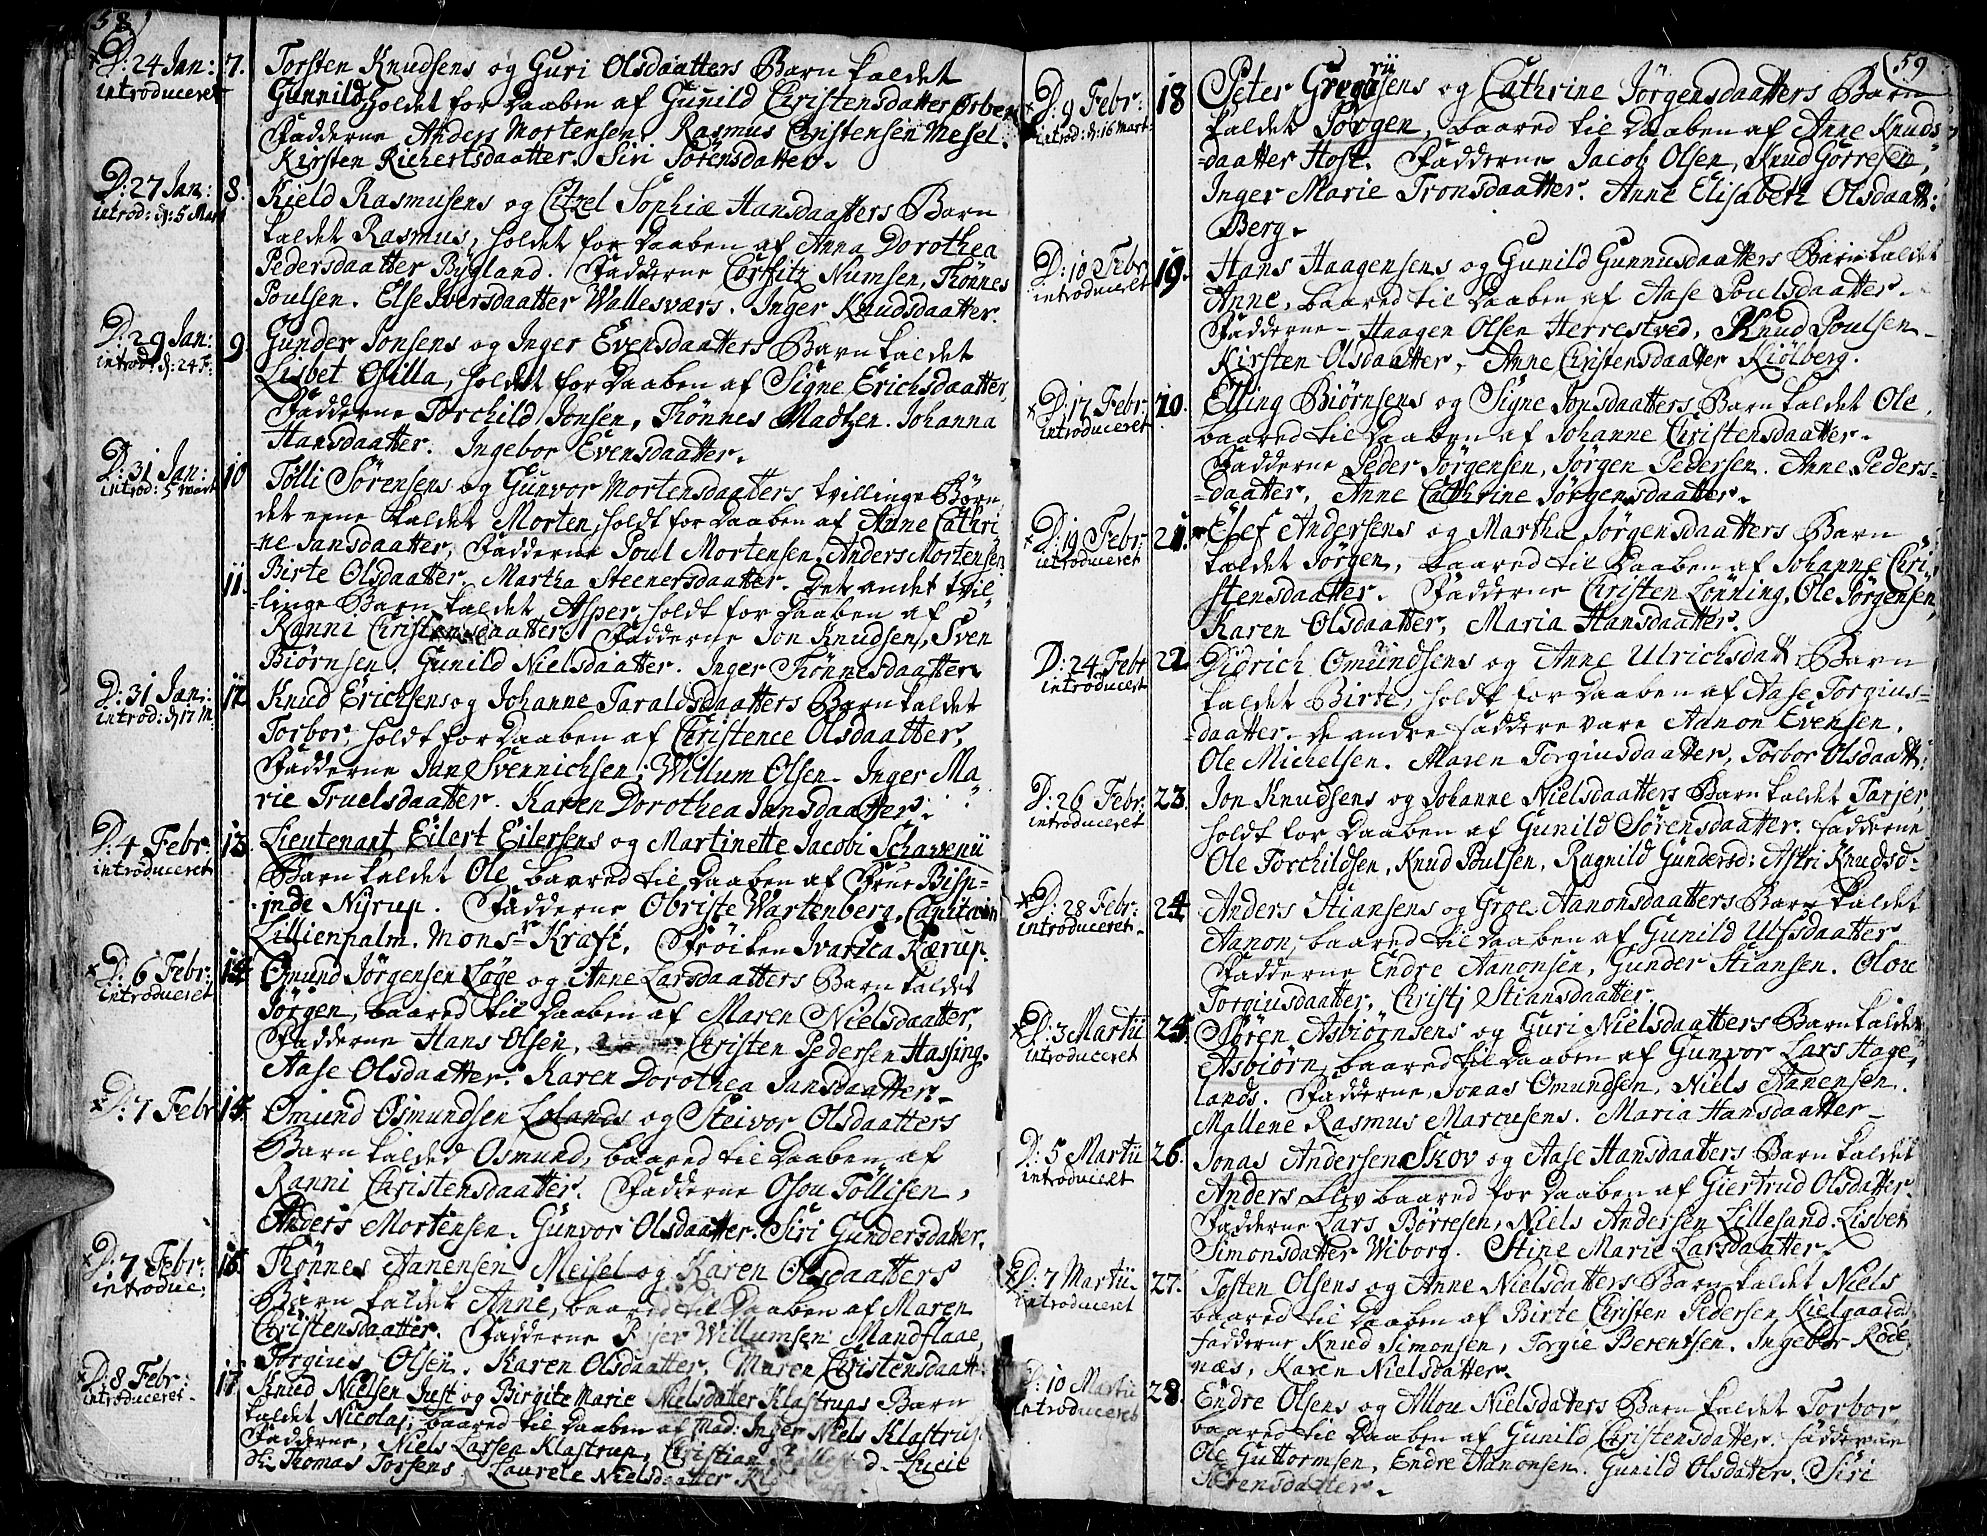 58)
D: 24 Jan: 7. Torsten Knudsens og Guri Olsdaatters Barn kaldet
introduceret Gunnild, holdet for Daaben af Gunild Christensdatter
Fadderne Anders Mortensen, Rasmus Christensen Mesel.
Kirsten Richertsdaatter. Siri Sörensdatter.
D: 27 Jan: 8. Kield Rasmusens og Citzel Sophiæ Hansdaatters Barn
introd: d: 5 Mart kaldet Rasmus, holdet for Daaben af Anna Dorothea
Pedersdaatter Bygland. Fadderne Corfitz Numsen, Thönnes
Poulsen. Else Iversdaatter Wallesværs. Inger Knudsdaatter.
D: 29 Jan: 9. Gunder Jonsens og Inger Evensdaatters Barn kaldet
introd: d: 24 F: Lisbet Osilla, holdet for Daaben af Signe Erichsdaatter,
Fadderne Torchild Jonsen, Thönnes Madtzen. Johanna
Hansdaatter. Ingebor Evensdaatter.
D: 31 Jan: 10 Tölli Sörensens og Gunvor Mortensdaatters tvillinge Börn,
introd: 5 Mart det eene kaldet Morten, holdt for Daaben af Anne Cathri-
-ne Jansdaatter, Fadderne Poul Mortensen, Anders Mortensen
11. Birte Olsdaatter, Martha Steenersdaatter. Det andet tvil-
-linge Barn kaldet Asper, holdt for Daaben af
Ranni Christensdaatter. Fadderne Jon Knudsen, Sven
Biörnsen, Gunild Nielsdaatter. Inger Thönnesdaatter
D: 31 Jan: 12 Knud Erichsens og Johanne Taraldsdaatters Barn kaldet
introd: d 17 M: Torbor, holdt for Daaben af Christence Olsdaatter,
Fadderne Jan Svennichsen, Willum Olsen. Inger Ma
rie Truelsdaatter. Karen Dorothea Jansdaatter.
D: 4 Febr: 13. Lieutenant Eilert Eilersens og Martinette Jacobi Schavenii
introduceret Barn kaldet Ole, baared til Daaben af Frue Bisp-
inde Nÿrup. Fadderne Obriste Wartenberg, Capitain
Lillienpalm. Monsr Kraft. Fröiken Ivarica Kærup.
D: 6 Febr: 14. Omund Jörgensen Löge og Anne Larsdaatters Barn kaldet
introduceret Jörgen, baared til Daaben af Maren Nielsdaatter,
Fadderne Hans Olsen, Christen Pedersen Hassing.
Aase Olsdaatter. Karen Dorothea Jansdaatter.
D: 7 Febr 15. Omund Osmundsen Lolands og Steivor Olsdaatters
Barn kalded Osmund, baared til Daaben af
Ranni Christensdaatter. Fadderne Osou Töllisen,
Anders Mortensen. Gunvor Olsdaatter. Siri Gundersdatter.
D: 7 Febr: 16. Thönnes Aanensen Meisel og Karen Olsdaatters
introduc: Barn kaldet Anne, baared til Daaben af Maren
Christensdaatter. Fadderne Rejer Willumsen Mandflaae,
Torgius Olsen. Karen Olsdaatter. Maren Christensdaatt:
D: 8 Febr: 17. Knud Nielsen Just og Birgite Marie Nielsdatter Klastrups Barn
introduceret kaldet Nicolaj, baared til Daaben af Mad: Inger Niels Klastrup.
Fadderne, Niels Larsen Klastrup, Christian Lucie
Thomas Torsens. Laurele Nielsdaatter
59
D: 9 Febr: 18 Peter Gregorii sens og Cathrine Jörgensdaatters Barn
introd: d: 16 Mart. kaldet Jörgen, baared til Daaben af Anne Knuds
-daatter Host. Fadderne Jacob Olsen, Knud Görresen,
Inger Marie Tronsdaatter. Anne Elisabeth Olsdaatt:
Berg.
D: 10 Febr 19. Hans Haagensens og Gunild Gunnusdaatters Barn kaldet
introduceret Anne, baared til Daaben af Aase Poulsdaatter.
Fadderne Haagen Olsen Herrestved, Knud Poulsen
Kirsten Olsdaatter, Anne Christensdaatter Kiölberg.
D: 17 Febr: 20. Elling Biörnsens og Signe Jonsdaatters Barn kaldet Ole,
introduceret baared til Daaben af Johanne Christensdaatter.
Fadderne Peder Jörgensen, Jörgen Pedersen. Anne Peders-
-daatter, Anne Cathrine Jörgensdaatter.
D: 19 Febr: 21. Elef Andersens og Martha Jörgensdaatters Barn
introduceret kaldet Jörgen, baared til Daaben af Johanne Chri
stensdaatter. Fadderne Christen Lönning, Ole Jörgensen,
Karen Olsdaatter, Maria Hansdaatter.
D: 24 Febr 22. Didrich Omundsens og Anne Ulrichsdatt Barn
introduceret kaldet Birte, holdt for Daaben af Aase Torgius-
-daatter. de andre faddere vare Aanon Evensen,
Ole Michelsen. Maren Torgiusdaatter, Torbor Olsdaatt:
D: 26 Febr: 23. Jon Knudsens og Johanne Nielsdaatters Barn kaldet Tarjer,
introduceret holdt for Daaben af Gunild Sörensdaatter. Fadderne
Ole Torchildsen, Knud Poulsen, Ragnild Gundersd: Astri Knudsd-
D: 28 Febr: 24. Anders Stiansens og Groe Aanonsdaatters Barn kaldet
introduceret. Aanon, baared til Daaben af Gunild Ulfsdaatter
Fadderne Endre Aanonsen, Gunder Stiansen. Olou
Torgiusdaatter, Christj Stiansdaatter.
D: 3 Martii 25. Sören Asbiörnsens og Guri Nielsdaatters Barn kaldet
introduceret Asbiörn, baared til Daaben af Gunvor Lars Hage-
lands. Fadderne, Jonas Omundsen, Niels Aanensen.
Mallene Rasmus Marcusens. Maria Hansdaatter
D: 5 Martii 26. Jonas Andersen Skov og Aase Hansdaatters Barn kaldet
introduceret Anders Elev baared for Daaben af Giertrud Olsdatter.
Fadderne Lars Börresen, Niels Andersen Lillesand. Lisbet
Simonsdatter Wiborg. Stine Marie Larsdaatter.
D: 7 Martii 27. Tosten Olsens og Anne Nielsdatters Barn kaldet Niels
introduceret baared til Daaben af Birte Christen Pedersen Kielgaards
fadderne Knud Simonsen, Torgie Berentsen. Ingebor Röde
næs, Karen Nielsdatter.
D: 10 Martii 28. Endre Olsens og Allou Nielsdatters Barn kaldet Torbor,
introduceret baared til Daaben af Gunild Christensdatter. fadderne
Ole Guttormsen, Endre Aanonsen. Gunild Olsdatter. Siri
Sörensdatter.